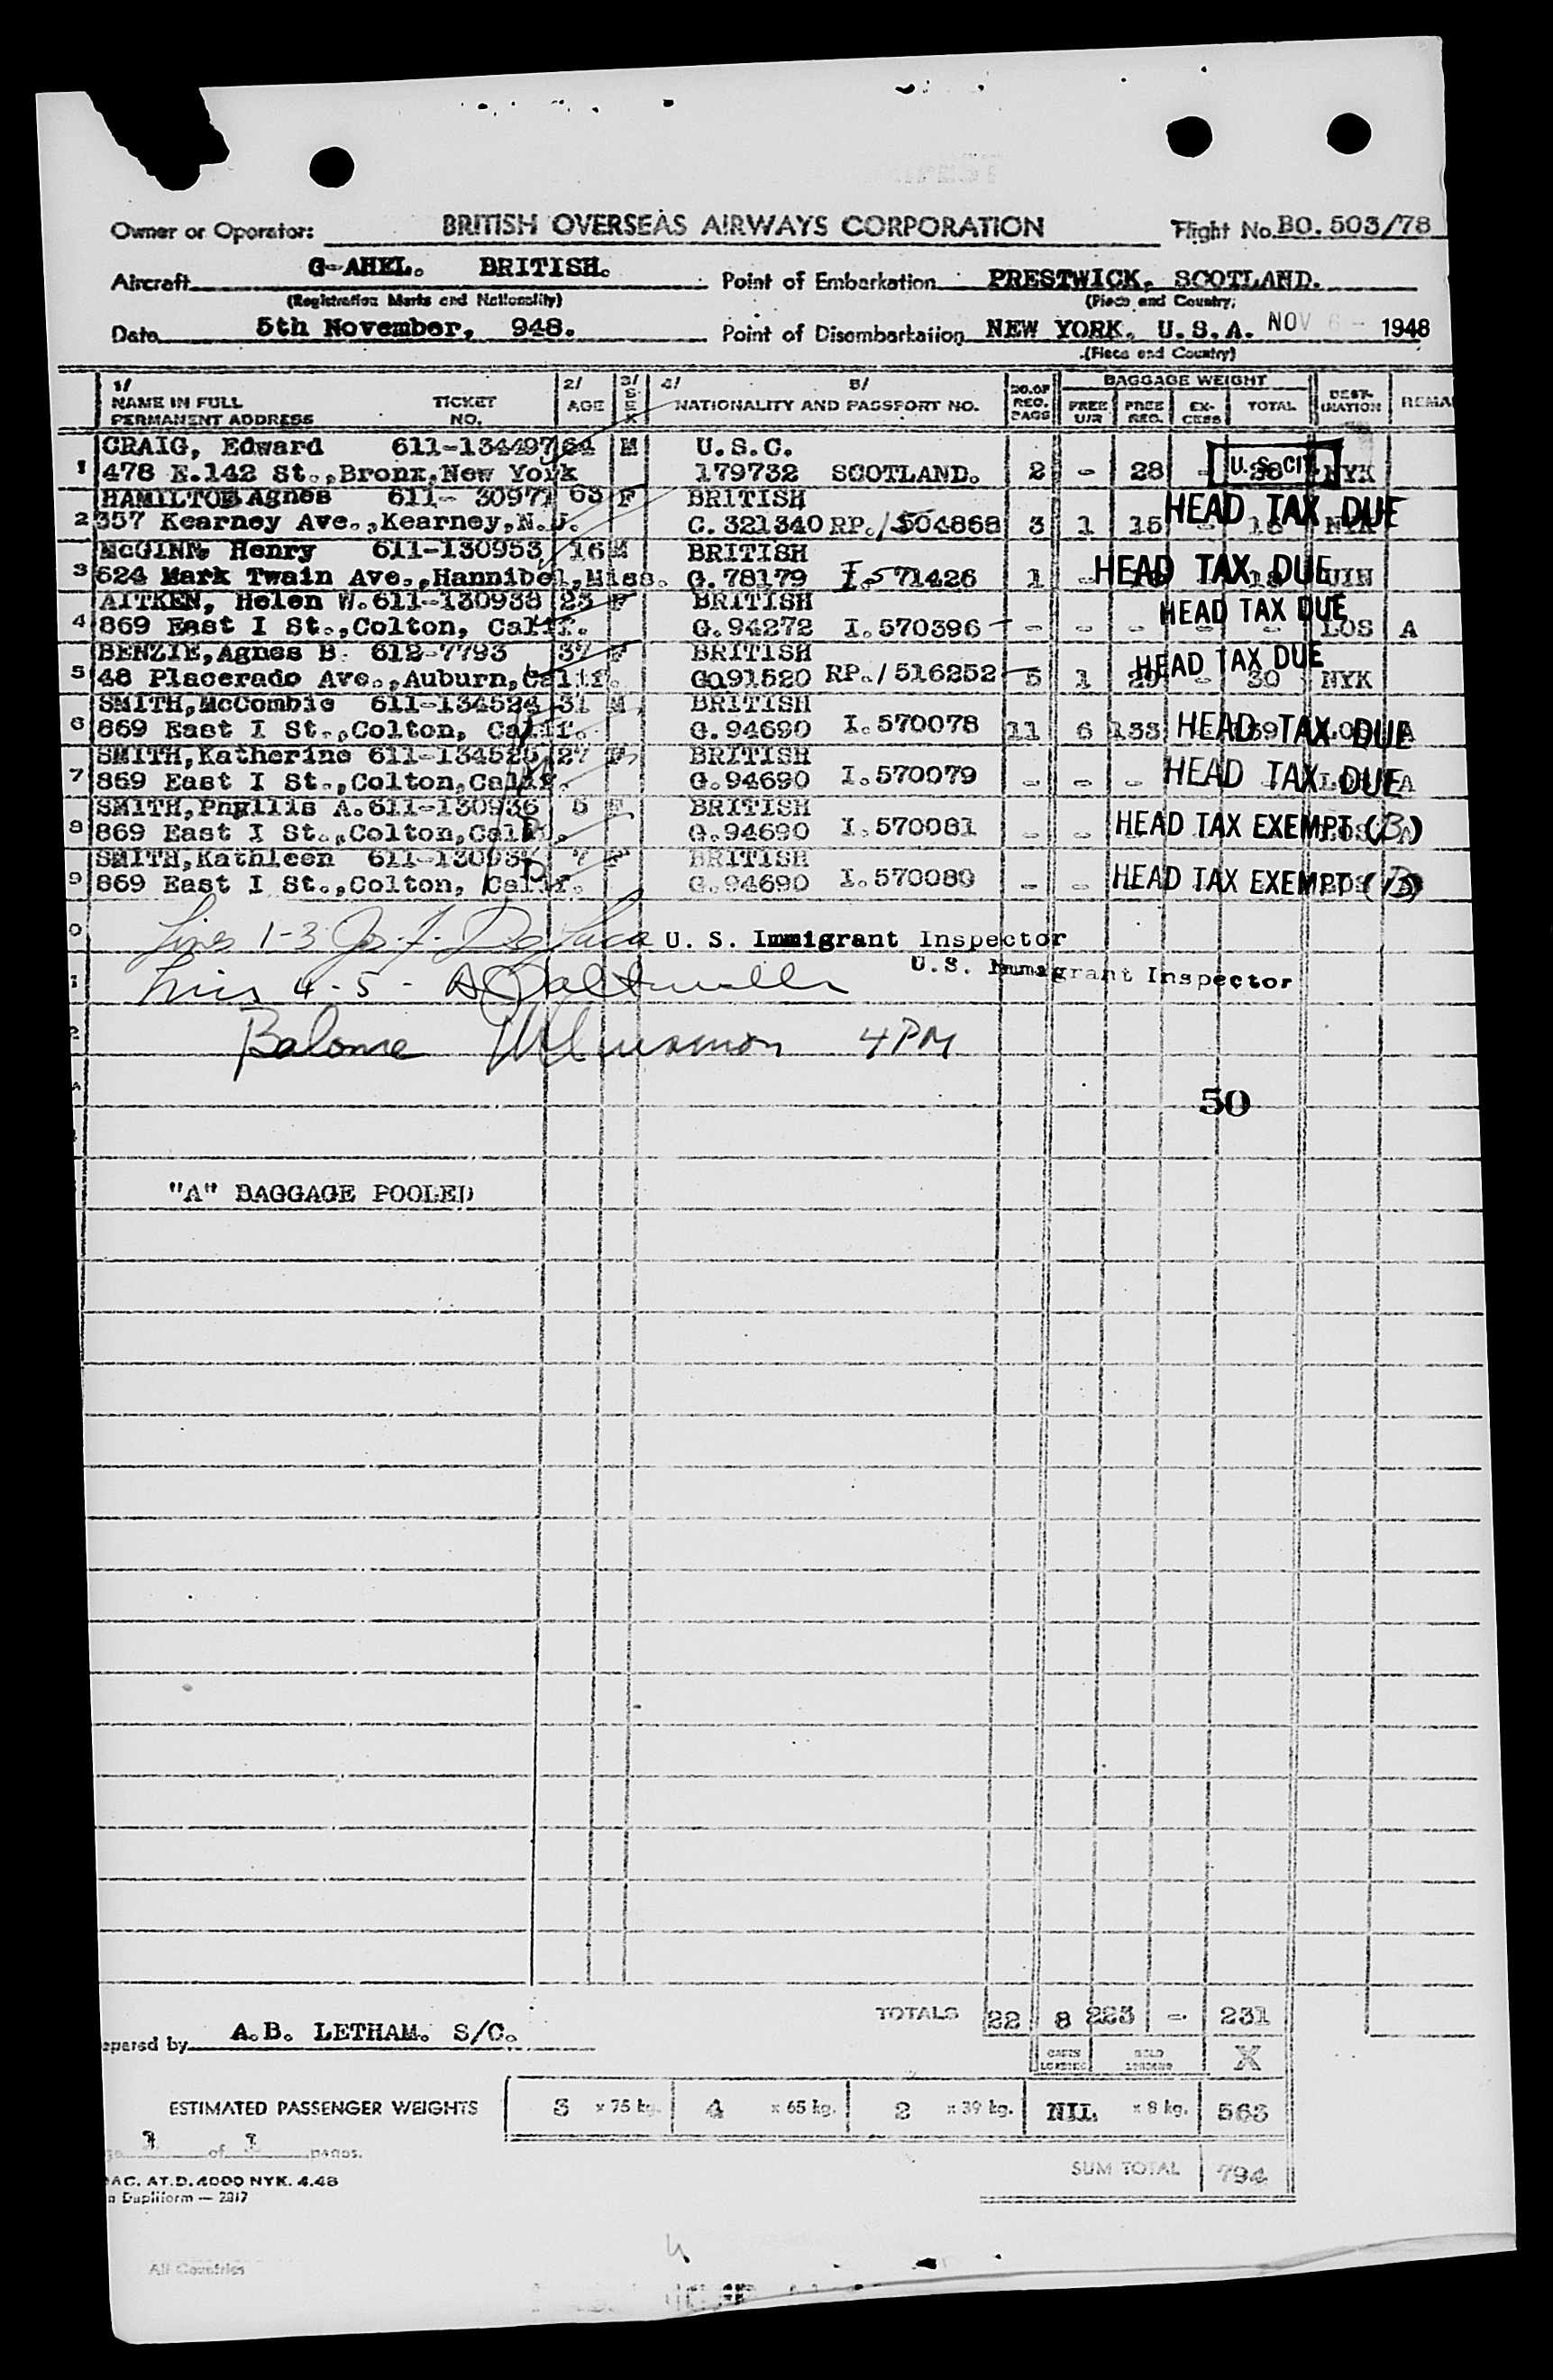 Owner or Operator: BRITISH OVERSEAS AIRWAYS CORPORATION Flight No. BO. 503/78
Aircraft G-AHEL. BRITISH. Point of Embarkation PRESTWICK, SCOTLAND.
(Registration Marks and Nationality) (Place and Country)
Date 5th November, 948. Point of Disembarkation NEW YORK. U.S.A. NOV 6 - 1948
(Place and Country)
1/ 2/ 3/ 4/ 5/ BAGGAGE WEIGHT
NAME IN FULL TICKET AGE SEX NATIONALITY AND PASSPORT NO. NO. OF REG. BAGS FREE U/R FREE REG. EX-CESS TOTAL DEST-INATION REMA
PERMANENT ADDRESS NO.
CRAIG, Edward 611-134497 64 M U.S.C.
1 478 E.142 St.,Bronx,New York 179732 SCOTLAND. 2 - 28 - 28 U.S. CIT. NYK
HAMILTON Agnes 611- 30971 63 F BRITISH HEAD TAX DUE
2 357 Kearney Ave.,Kearney,N.J. C.321340 RP./504868 3 1 15 - 16 NYK
McGINN, Henry 611-130953 16 M BRITISH HEAD TAX DUE
3 624 Mark Twain Ave.,Hannibel,Miss. G.78179 I.571426 1 - - UIN
AITKEN, Helen W. 611-130938 23 F BRITISH HEAD TAX DUE
4 869 East I St.,Colton, Calif. G.94272 I.570396 - - - - - LOS A
BENZIE, Agnes B. 612-7793 37 F BRITISH HEAD TAX DUE
5 48 Placerado Ave.,Auburn,Calif. G.91520 RP./516252 5 1 29 - 30 NYK
SMITH, McCombie 611-134524 31 M BRITISH
6 869 East I St.,Colton, Calif. G.94690 I.570078 11 6 133 - 139 LOS A HEAD TAX DUE
SMITH, Katherine 611-134525 27 F BRITISH
7 869 East I St.,Colton,Calif. G.94690 I.570079 - - - LOS A HEAD TAX DUE
SMITH, Phyllis A. 611-130936 5 F BRITISH
8 869 East I St.,Colton,Calif. G.94690 I.570081 - - HEAD TAX EXEMPT (B) LOS A
SMITH, Kathleen 611-130937 7 F BRITISH
9 869 East I St.,Colton, Calif. G.94690 I.570080 - - HEAD TAX EXEMPT (B) LOS A
Lines 1-3 U. S. Immigrant Inspector
Lines 4-5 - U.S. Immigrant Inspector
Balance 4 PM
50
"A" BAGGAGE POOLED
TOTALS 22 8 223 - 231
epared by A.B. LETHAM. S/C.
CABIN LOADING HOLD LOADING X
ESTIMATED PASSENGER WEIGHTS 3 x 75 kg. 4 x 65 kg. 2 x 39 kg. NIL x 8 kg. 563
of pages.
SUM TOTAL 794
AC. AT.D.4000 NYK. 4.48
Dupliform — 2817
All Countries